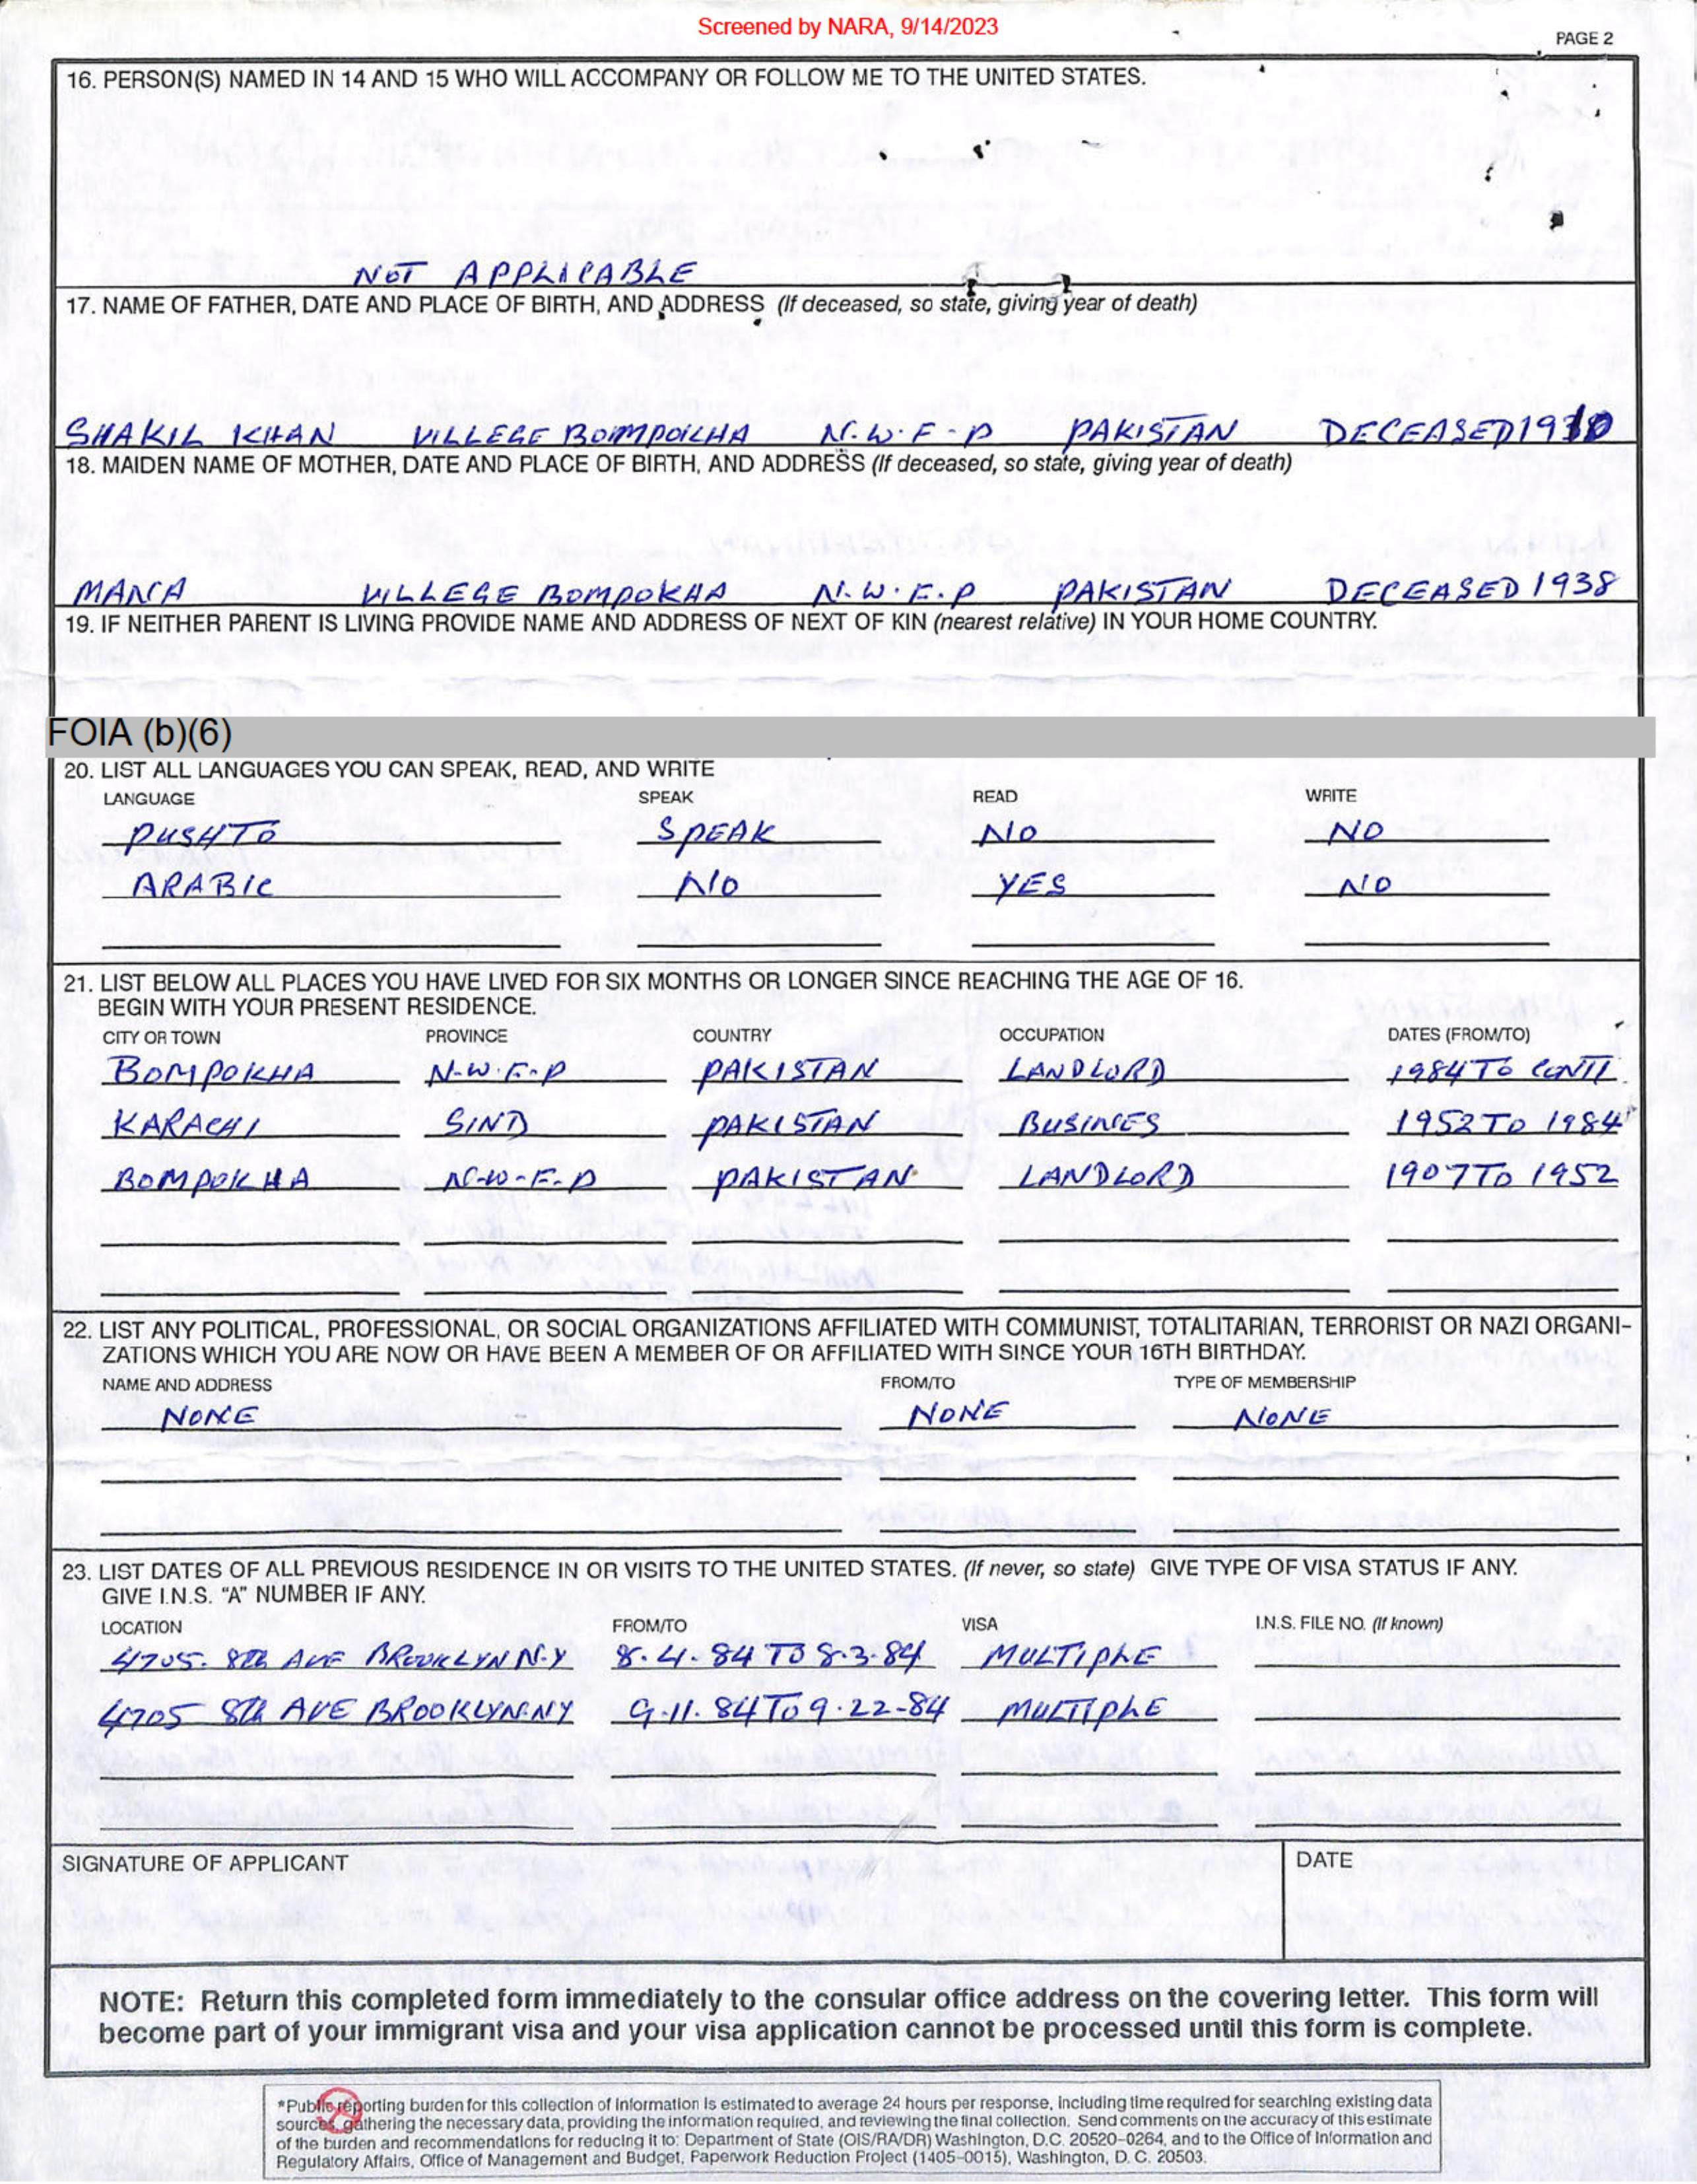 Screened by NARA, 9/14/2023
PAGE 2
16. PERSON(S) NAMED IN 14 AND 15 WHO WILL ACCOMPANY OR FOLLOW ME TO THE UNITED STATES.
NOT APPLICABLE
17. NAME OF FATHER, DATE AND PLACE OF BIRTH, AND ADDRESS (If deceased, so state, giving year of death)
SHAKIL KHAN VILLEGE BOMPOKHA N.W.F-P PAKISTAN DECEASED
18. MAIDEN NAME OF MOTHER, DATE AND PLACE OF BIRTH, AND ADDRESS (If deceased, so state, giving year of death)
VILLEGE BOMPOKHA N.W.F.P PAKISTAN DECEASED 1938
19. IF NEITHER PARENT IS LIVING PROVIDE NAME AND ADDRESS OF NEXT OF KIN (nearest relative) IN YOUR HOME COUNTRY.
FOIA (b)(6)
20. LIST ALL LANGUAGES YOU CAN SPEAK, READ, AND WRITE
LANGUAGE SPEAK READ WRITE
PUSHTO SPEAK NO NO
ARABIC NO YES NO
21. LIST BELOW ALL PLACES YOU HAVE LIVED FOR SIX MONTHS OR LONGER SINCE REACHING THE AGE OF 16.
BEGIN WITH YOUR PRESENT RESIDENCE.
CITY OR TOWN PROVINCE COUNTRY OCCUPATION DATES (FROM/TO)
BOMPOKHA N-W.F-P PAKISTAN LANDLORD 1984 TO CONTI.
KARACHI SIND PAKISTAN BUSINES 1952 TO 1984
BOMPOKHA N-W-F-P PAKISTAN LANDLORD 1907 TO 1952
22. LIST ANY POLITICAL, PROFESSIONAL, OR SOCIAL ORGANIZATIONS AFFILIATED WITH COMMUNIST, TOTALITARIAN, TERRORIST OR NAZI ORGANI-
ZATIONS WHICH YOU ARE NOW OR HAVE BEEN A MEMBER OF OR AFFILIATED WITH SINCE YOUR 16TH BIRTHDAY.
NAME AND ADDRESS FROM/TO TYPE OF MEMBERSHIP
NONE NONE NONE
23. LIST DATES OF ALL PREVIOUS RESIDENCE IN OR VISITS TO THE UNITED STATES. (If never, so state) GIVE TYPE OF VISA STATUS IF ANY.
GIVE I.N.S. "A" NUMBER IF ANY.
LOCATION FROM/TO VISA I.N.S. FILE NO. (If known)
4705. 8Th AVE BROOKLYN N.Y 8.4.84 TO 8.3.84 MULTIPLE
4705 8Th AVE BROOKLYN.NY 9.11.84 TO 9.22-84 MULTIPLE
SIGNATURE OF APPLICANT DATE
NOTE: Return this completed form immediately to the consular office address on the covering letter. This form will
become part of your immigrant visa and your visa application cannot be processed until this form is complete.
*Public reporting burden for this collection of information is estimated to average 24 hours per response, including time required for searching existing data
sources, gathering the necessary data, providing the information required, and reviewing the final collection. Send comments on the accuracy of this estimate
of the burden and recommendations for reducing it to: Department of State (OIS/RA/DR) Washington, D.C. 20520-0264, and to the Office of Information and
Regulatory Affairs, Office of Management and Budget, Paperwork Reduction Project (1405-0015), Washington, D.C. 20503.